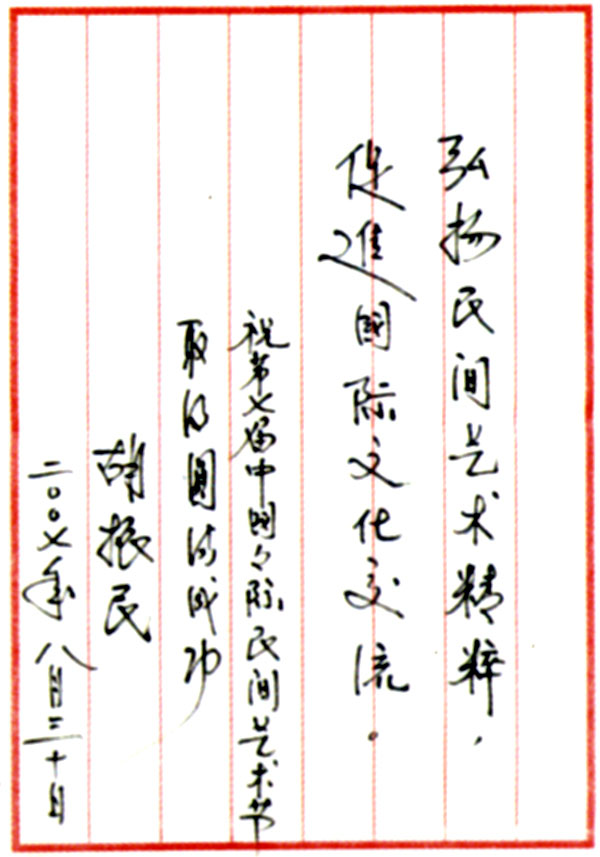 弘扬民间艺术精粹，
促進國际文化交流。
祝第七届中国々际民间艺术节
取得圆满成功
胡振民
二〇〇七年八月二十日